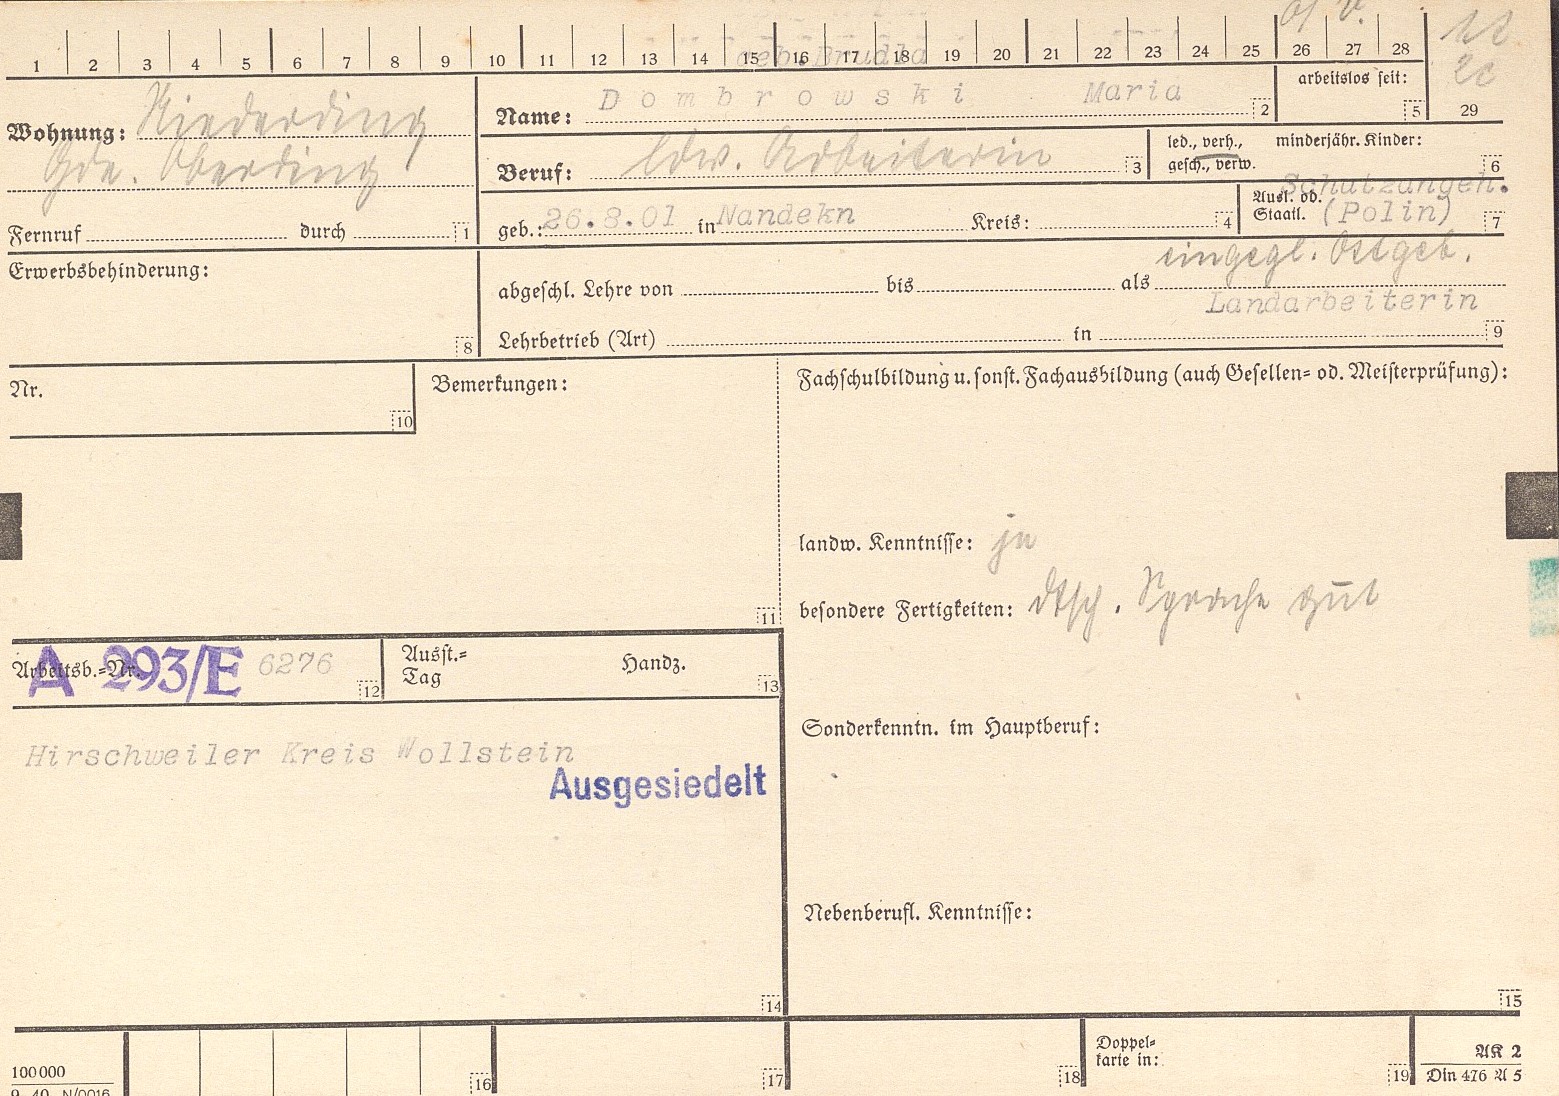 1 2 3 4 5 6 7 8 9 10 11 12 13 14 15 16 17 18 19 20 21 22 23 24 25 26 27 28
geb. Brudla
Wohnung: Niederding
Gde. Oberding
Fernruf durch 1
Name: Dombrowski Maria 2
arbeitslos seit: 5
29
Beruf: ldw. Arbeiterin 3
led., verh., gesch., verw. minderjähr. Kinder: 6
geb.: 26.8.01 in Nandekn Kreis: 4
Ausl. od. Staatl. Schutzangeh. (Polin) 7
eingegl. Ostgeb.
Erwerbsbehinderung: 8
abgeschl. Lehre von bis als
Landarbeiterin
Lehrbetrieb (Art) in 9
Nr. 10
Bemerkungen: 11
Fachschulbildung u. sonst. Fachausbildung (auch Gesellen= od. Meisterprüfung):
landw. Kenntnisse: ja
besondere Fertigkeiten: dtsch. Sprache gut
Arbeitsb.=Nr. A 293/E 6276 12
Ausst.= Tag Handz. 13
Hirschweiler Kreis Wollstein
Ausgesiedelt
14
Sonderkenntn. im Hauptberuf:
Nebenberufl. Kenntnisse:
15
100000
9. 40. N/0016
16 17 18
Doppel= karte in: 19
AK 2
Din 476 A 5